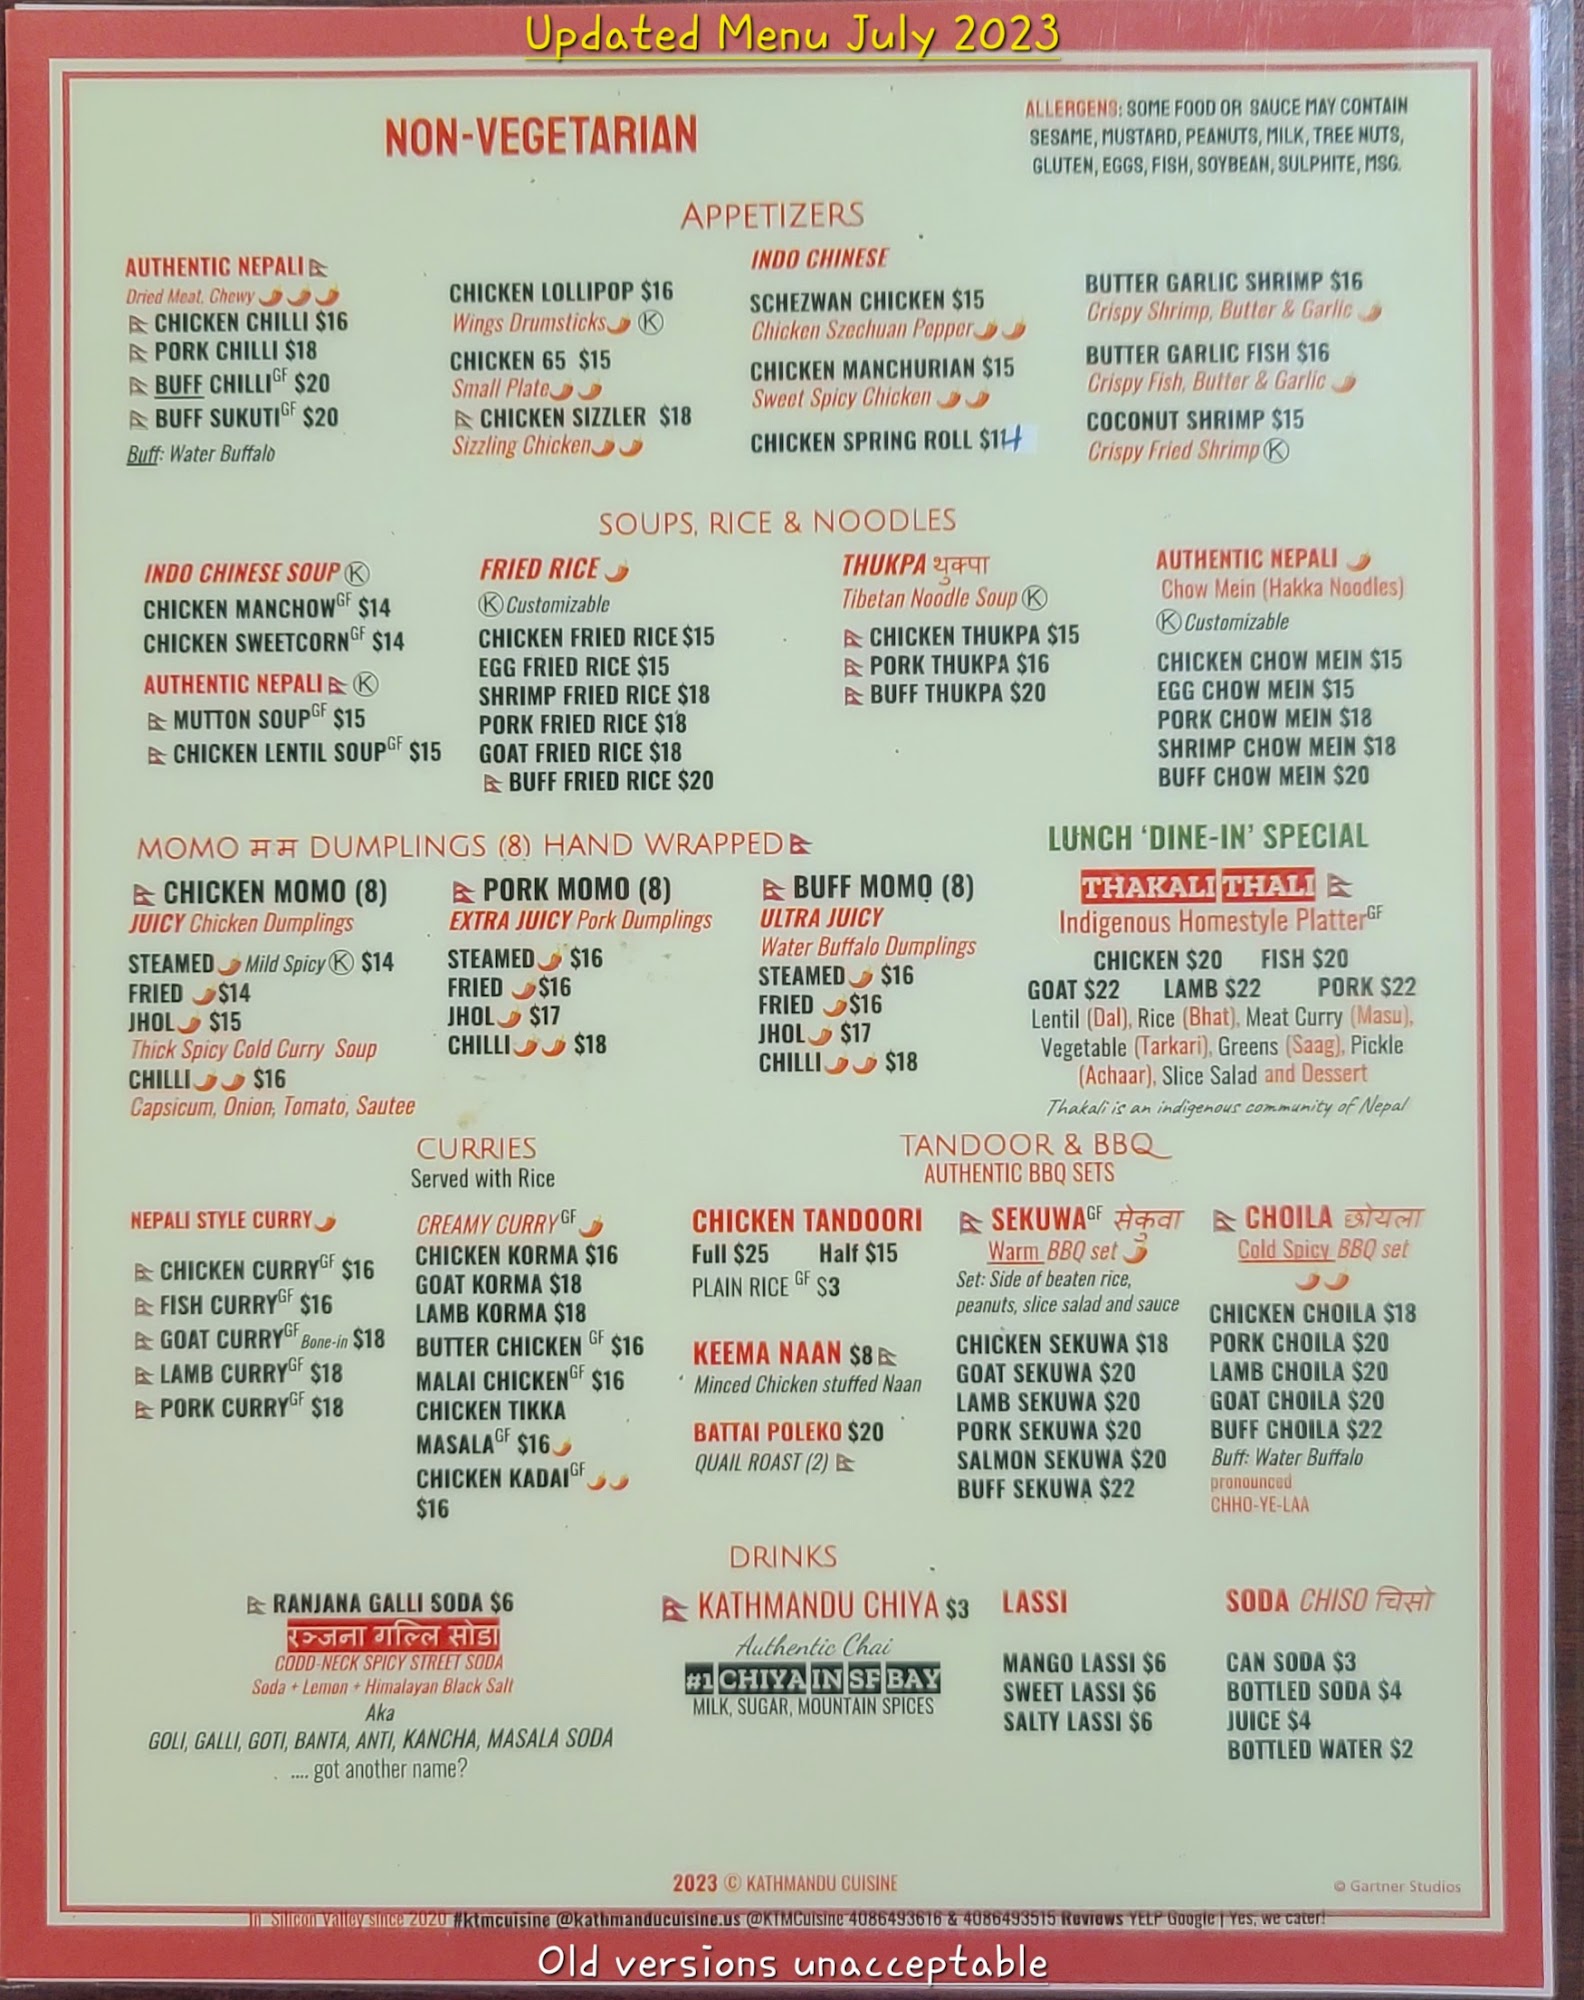 Updated Menu July 2023
NON-VEGETARIAN
ALLERGENS: SOME FOOD OR SAUCE MAY CONTAIN
SESAME, MUSTARD, PEANUTS, MILK, TREE NUTS,
GLUTEN, EGGS, FISH, SOYBEAN, SULPHITE, MSG.
APPETIZERS
AUTHENTIC NEPALI
Dried Meat, Chewy
CHICKEN CHILLI $16
PORK CHILLI $18
BUFF CHILLI GF $20
BUFF SUKUTI GF $20
Buff: Water Buffalo
CHICKEN LOLLIPOP $16
Wings Drumsticks Ⓚ
CHICKEN 65 $15
Small Plate
CHICKEN SIZZLER $18
Sizzling Chicken
INDO CHINESE
SCHEZWAN CHICKEN $15
Chicken Szechuan Pepper
CHICKEN MANCHURIAN $15
Sweet Spicy Chicken
CHICKEN SPRING ROLL $14
BUTTER GARLIC SHRIMP $16
Crispy Shrimp, Butter & Garlic
BUTTER GARLIC FISH $16
Crispy Fish, Butter & Garlic
COCONUT SHRIMP $15
Crispy Fried Shrimp Ⓚ
SOUPS, RICE & NOODLES
INDO CHINESE SOUP Ⓚ
CHICKEN MANCHOW GF $14
CHICKEN SWEETCORN GF $14
AUTHENTIC NEPALI Ⓚ
MUTTON SOUP GF $15
CHICKEN LENTIL SOUP GF $15
FRIED RICE
Ⓚ Customizable
CHICKEN FRIED RICE $15
EGG FRIED RICE $15
SHRIMP FRIED RICE $18
PORK FRIED RICE $18
GOAT FRIED RICE $18
BUFF FRIED RICE $20
THUKPA थुक्पा
Tibetan Noodle Soup Ⓚ
CHICKEN THUKPA $15
PORK THUKPA $16
BUFF THUKPA $20
AUTHENTIC NEPALI
Chow Mein (Hakka Noodles)
Ⓚ Customizable
CHICKEN CHOW MEIN $15
EGG CHOW MEIN $15
PORK CHOW MEIN $18
SHRIMP CHOW MEIN $18
BUFF CHOW MEIN $20
MOMO मम DUMPLINGS (8) HAND WRAPPED
CHICKEN MOMO (8)
JUICY Chicken Dumplings
STEAMED Mild Spicy Ⓚ $14
FRIED $14
JHOL $15
Thick Spicy Cold Curry Soup
CHILLI $16
Capsicum, Onion, Tomato, Sautee
PORK MOMO (8)
EXTRA JUICY Pork Dumplings
STEAMED $16
FRIED $16
JHOL $17
CHILLI $18
BUFF MOMO (8)
ULTRA JUICY
Water Buffalo Dumplings
STEAMED $16
FRIED $16
JHOL $17
CHILLI $18
LUNCH ‘DINE-IN’ SPECIAL
THAKALI THALI
Indigenous Homestyle Platter GF
CHICKEN $20 FISH $20
GOAT $22 LAMB $22 PORK $22
Lentil (Dal), Rice (Bhat), Meat Curry (Masu),
Vegetable (Tarkari), Greens (Saag), Pickle
(Achaar), Slice Salad and Dessert
Thakali is an indigenous community of Nepal
CURRIES
Served with Rice
NEPALI STYLE CURRY
CHICKEN CURRY GF $16
FISH CURRY GF $16
GOAT CURRY GF Bone-in $18
LAMB CURRY GF $18
PORK CURRY GF $18
CREAMY CURRY GF
CHICKEN KORMA $16
GOAT KORMA $18
LAMB KORMA $18
BUTTER CHICKEN GF $16
MALAI CHICKEN GF $16
CHICKEN TIKKA
MASALA GF $16
CHICKEN KADAI GF
$16
TANDOOR & BBQ
AUTHENTIC BBQ SETS
CHICKEN TANDOORI
Full $25 Half $15
PLAIN RICE GF $3
KEEMA NAAN $8
Minced Chicken stuffed Naan
BATTAI POLEKO $20
QUAIL ROAST (2)
SEKUWA GF सेकुवा
Warm BBQ set
Set: Side of beaten rice,
peanuts, slice salad and sauce
CHICKEN SEKUWA $18
GOAT SEKUWA $20
LAMB SEKUWA $20
PORK SEKUWA $20
SALMON SEKUWA $20
BUFF SEKUWA $22
CHOILA छोयला
Cold Spicy BBQ set
CHICKEN CHOILA $18
PORK CHOILA $20
LAMB CHOILA $20
GOAT CHOILA $20
BUFF CHOILA $22
Buff: Water Buffalo
pronounced
CHHO-YE-LAA
DRINKS
RANJANA GALLI SODA $6
रञ्जना गल्लि सोडा
CODD-NECK SPICY STREET SODA
Soda + Lemon + Himalayan Black Salt
Aka
GOLI, GALLI, GOTI, BANTA, ANTI, KANCHA, MASALA SODA
.... got another name?
KATHMANDU CHIYA $3
Authentic Chai
#1 CHIYA IN SF BAY
MILK, SUGAR, MOUNTAIN SPICES
LASSI
MANGO LASSI $6
SWEET LASSI $6
SALTY LASSI $6
SODA CHISO चिसो
CAN SODA $3
BOTTLED SODA $4
JUICE $4
BOTTLED WATER $2
2023 © KATHMANDU CUISINE
© Gartner Studios
In Silicon Valley since 2020 #ktmcuisine @kathmanducuisine.us @KTMCuisine 4086493616 & 4086493515 Reviews YELP Google | Yes, we cater!
Old versions unacceptable